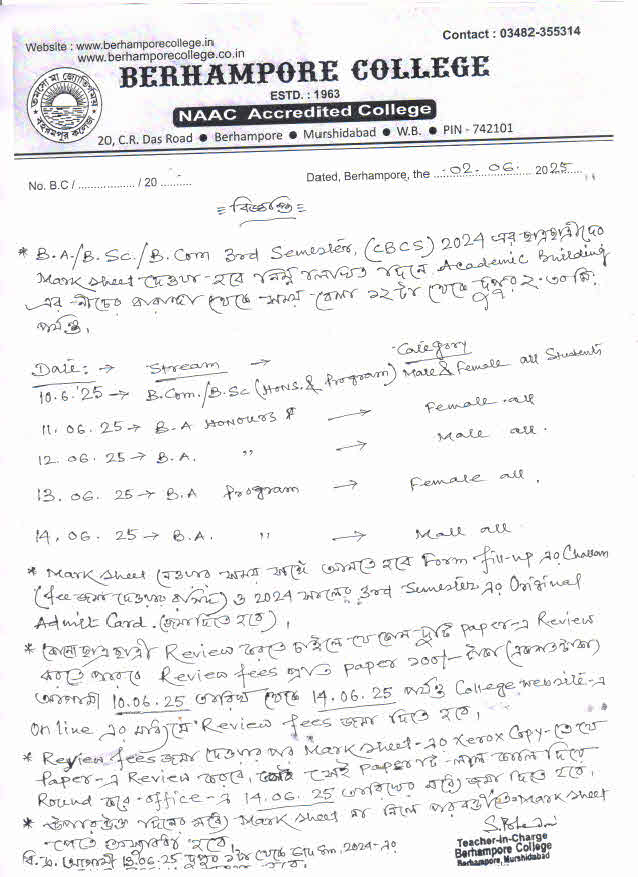 Website : www.berhamporecollege.in
www.berhamporecollege.co.in
Contact : 03482-355314
BERHAMPORE COLLEGE
ESTD. : 1963
NAAC Accredited College
20, C.R. Das Road ● Berhampore ● Murshidabad ● W.B. ● PIN - 742101
তমসো মা জ্যোতির্গময়
বহরমপুর কলেজ
No. B.C / .................. / 20 ..........
Dated, Berhampore, the ....02.06..... 2025......
বিজ্ঞপ্তি
* B.A./B.Sc./B.Com 3rd Semester, (CBCS) 2024 এর ছাত্রছাত্রীদের
Mark sheet দেওয়া হবে নিম্ন দিনে Academic Building
এর নীচের থেকে সময় বেলা ১২টা থেকে দুপুর ২-৩০ মি:
পর্যন্ত।
Date: → Stream → Category
10.6.'25 → B.Com./B.Sc (Hons. & Program) Male & Female all Students
11.06.25 → B.A Honours → Female all
12.06.25 → B.A. " → Male all.
13.06.25 → B.A Program → Female all.
14.06.25 → B.A. " → Mall all.
* Mark sheet নেওয়ার সময় সঙ্গে আনতে হবে Form fill-up এর Challan
(fee জমা দেওয়ার রসিদ) ও 2024 সালের 3rd Semester এর Original
Admit Card. (জমা দিতে হবে)।
* কোনো ছাত্রছাত্রী Review করতে চাইলে যে কোন দুটি paper-এ Review
করতে পারবে Review fees প্রতি paper ১০০/- টাকা (একশত টাকা)
আগামী 10.06.25 তারিখ থেকে 14.06.25 পর্যন্ত College website-এ
Online এর মাধ্যমে Review fees জমা দিতে হবে।
* Review fees জমা দেওয়ার পর Mark sheet-এর Xerox Copy-তে যে
Paper-এ Review করবে, সেই Paper টি লাল কালি দিয়ে
Round করে office-এ 14.06.25 তারিখের মধ্যে জমা দিতে হবে।
* উপরিউক্ত দিনের মধ্যে Mark sheet না নিলে পরবর্তীতে Mark Sheet
পেতে হবে।
বি.দ্র. আগামী .06.25 দুপুর থেকে Sem, 2024-এর
Teacher-in-Charge
Berhampore College
Berhampore, Murshidabad